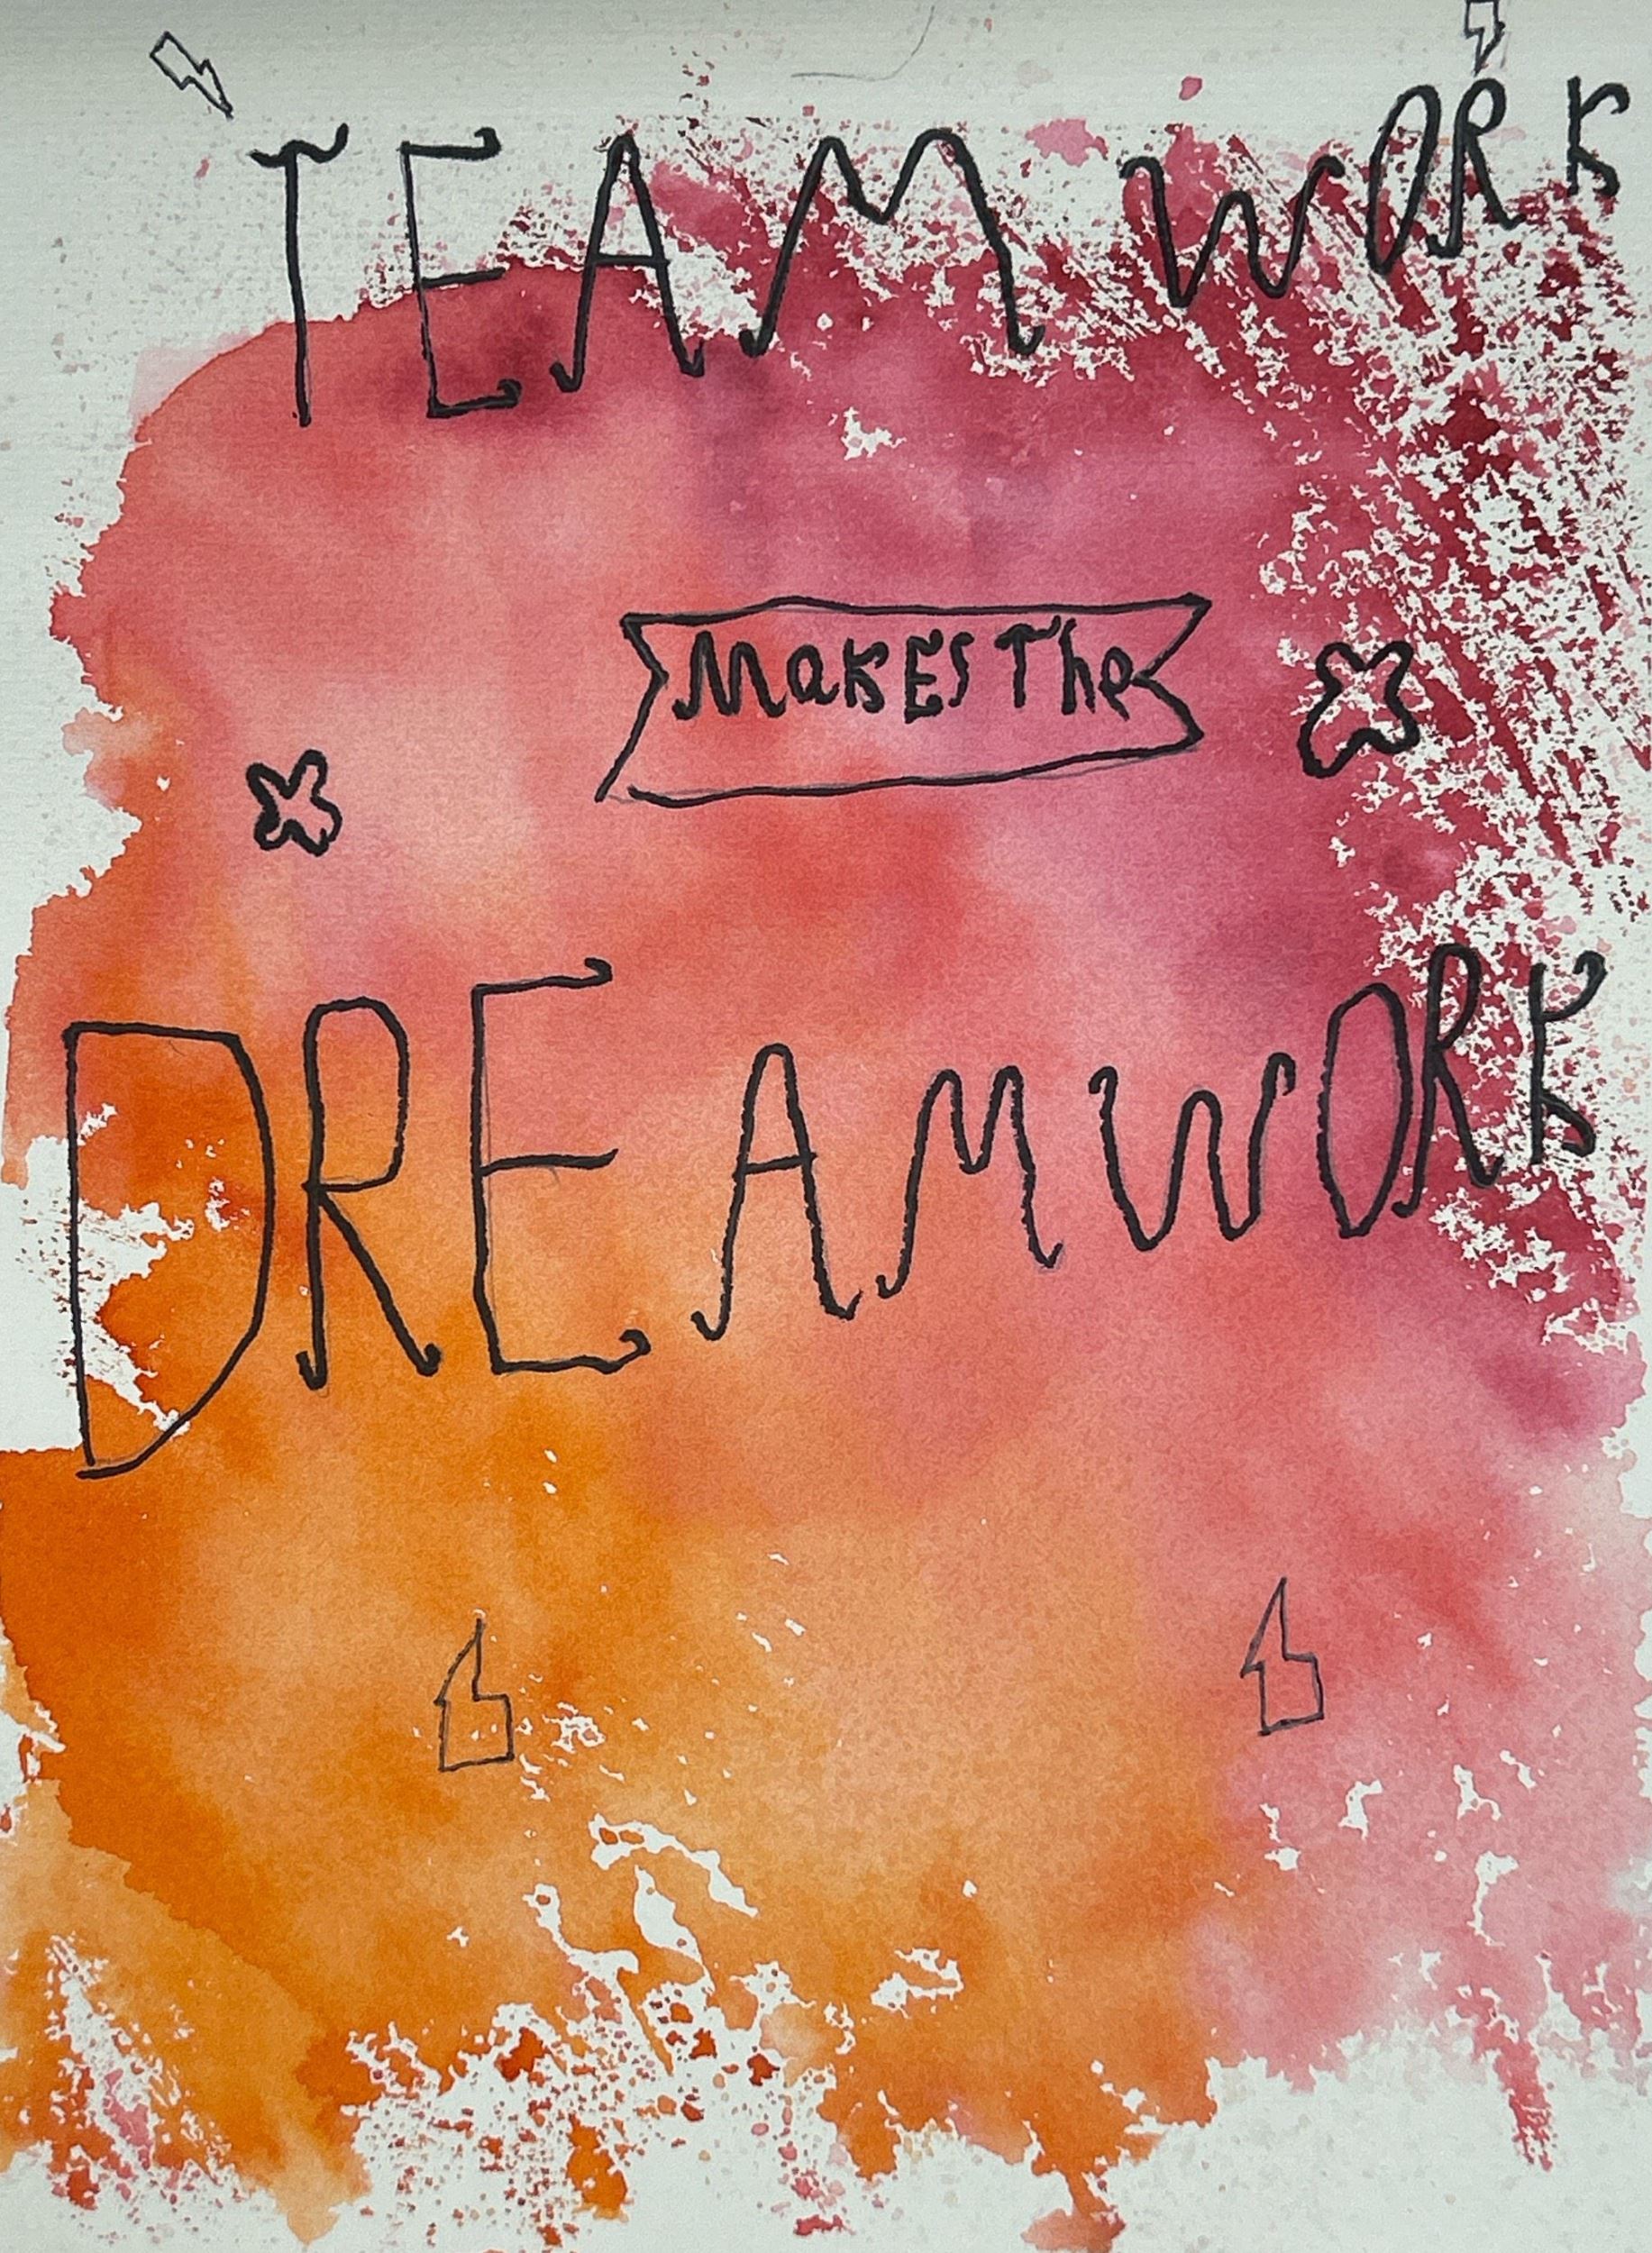 TEAM WORK
MakEs The
DREAMWORK